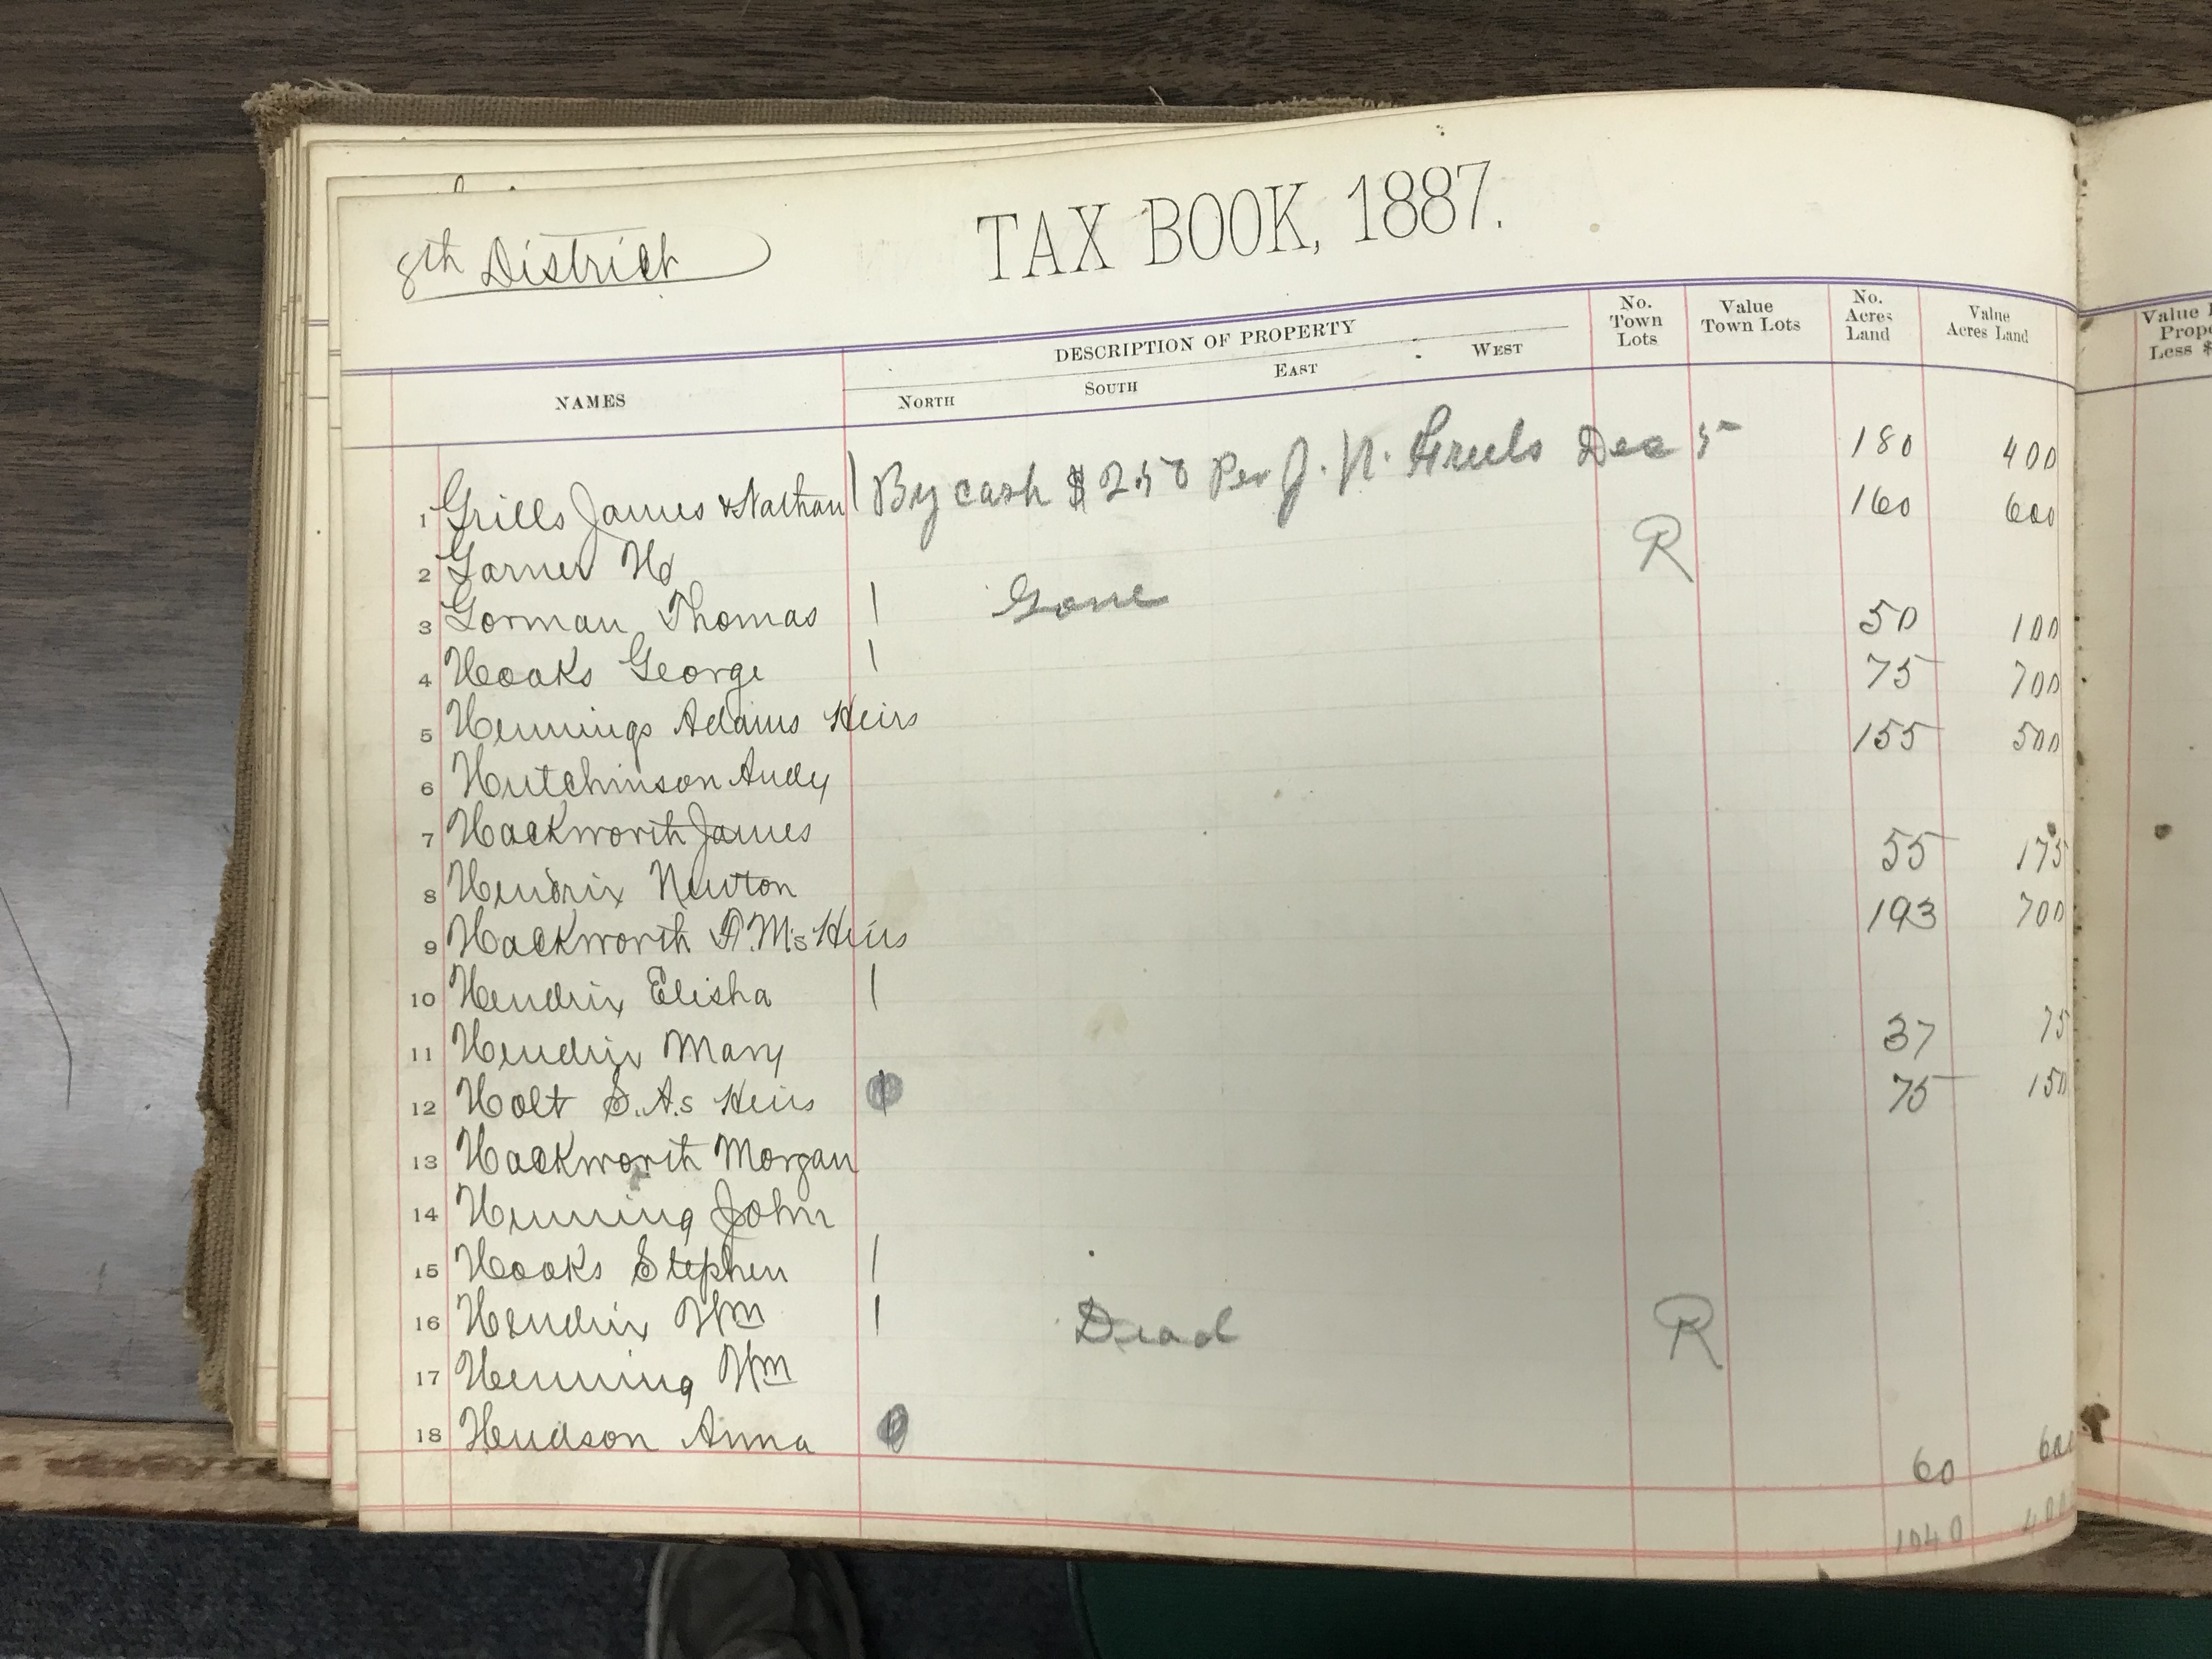 8th District
TAX BOOK, 1887.
NAMES
DESCRIPTION OF PROPERTY
NORTH SOUTH EAST WEST
No. Town Lots
Value Town Lots
No. Acres Land
Value Acres Land
Value
Less $
1 Grills James & Nathan | By cash $2.50 Per J. N. Dec 5 180 400
2 Garner 160 600
R
3 Gorman Thomas | Gone
4 Hooks George | 50 100
5 Hennings Adams Heirs 75 700
6 Hutchinson Andy 155 500
7 Hackworth James
8 Hendrix Newton 55 175
9 Hackworth Heirs 193 700
10 Hendrix Elisha |
11 Hendrix Mary 37 75
12 Holt S.A.s Heirs 75 150
13 Hackworth Morgan
14 Henning John
15 Hooks Stephen |
16 Hendrix Wm | Dead R
17 Henning Wm
18 Hudson Anna 60 600
1040